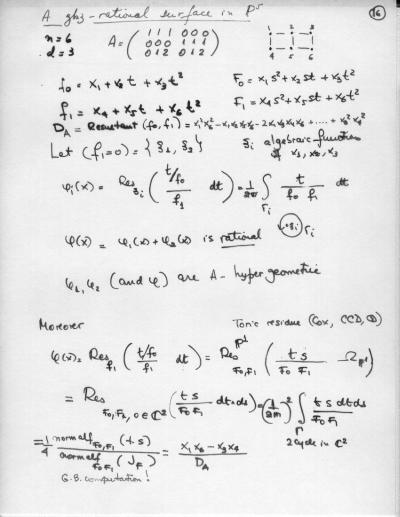 A gkz-rational surface in P⁵
16
n=6
d=3
A = ( 1 1 1 0 0 0
0 0 0 1 1 1
0 1 2 0 1 2 )
1 2 3
4 5 6
f₀ = x₁ + x₂t + x₃t²
F₀ = x₁s² + x₂st + x₃t²
f₁ = x₄ + x₅t + x₆t²
F₁ = x₄s² + x₅st + x₆t²
D_A = Resultant (f₀, f₁) =
Let (f₁=0) = { ξ₁, ξ₂ }
ξᵢ algebraic function
φᵢ(x) = Res_ξᵢ ( t/f₀ / f₁ dt ) = 1/2πi ∫_Γᵢ t / f₀ f₁ dt
φ(x) = φ₁(x) + φ₂(x) is rational
·ξᵢ Γᵢ
φ₁, φ₂ (and φ) are A-hypergeometric
Moreover
Toric residue (Cox, CCD, )
φ(x) = Res_f₁ ( t/f₀ / f₁ dt ) = Res^P¹_F₀,F₁ ( t s / F₀ F₁ Ω_P¹ )
= Res_F₀,F₁, 0 ∈ C² ( t s / F₀ F₁ dt∧ds ) = (1/2πi)² ∫_Γ t s dt ds / F₀ F₁
2 cycle in C²
= 1/4 normalf_F₀,F₁ (t.s) / normalf_F₀,F₁ (J_F) = x₁x₆ − x₃x₄ / D_A
G.B. computation!